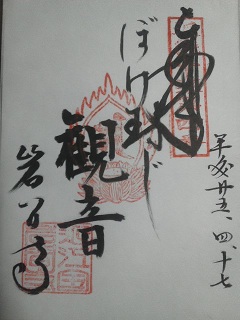 奉拝
平成廿五、四、十七
ぼけ封じ
観音
岩間寺